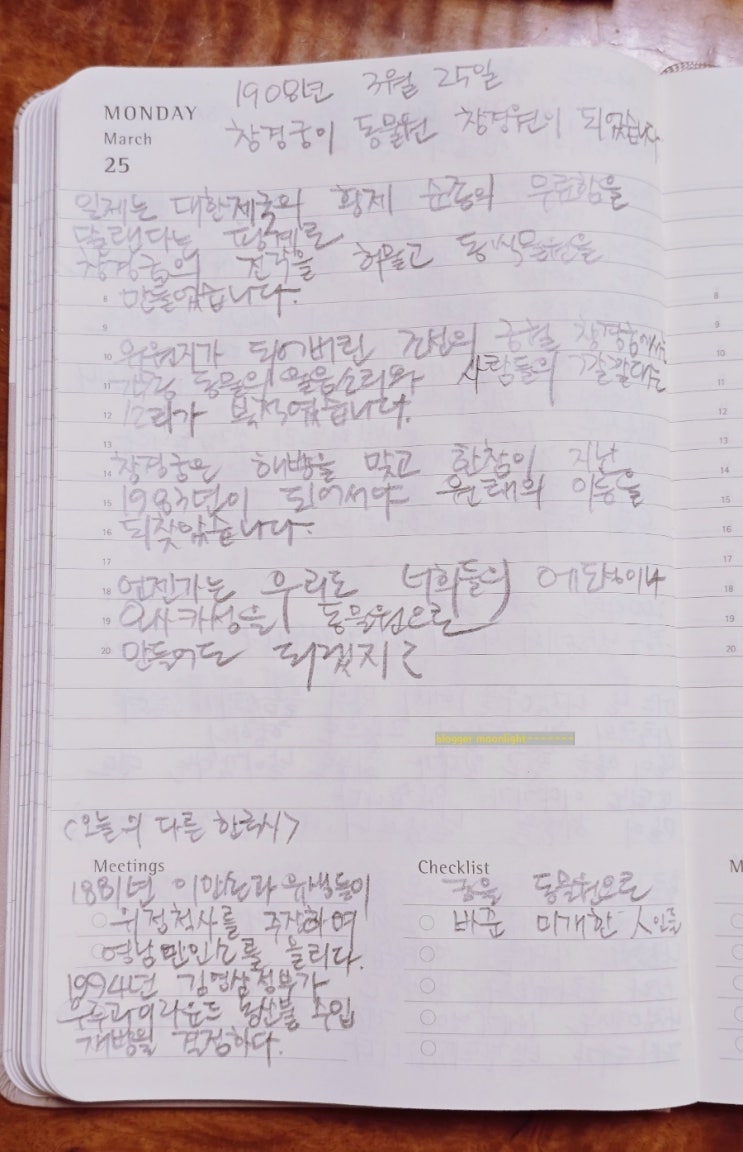 1908년 3월 25일
MONDAY
March
25
창경궁이 동물원 창경원이 되었습니다
일제는 대한제국의 황제 순종의 무료함을
달랜다는 핑계로
창경궁의 전각을 허물고 동·식물원을
8 만들었습니다.
9
10 유원지가 되어버린 조선의 궁궐 창경궁에서는
11 각종 동물의 울음소리와 사람들의 깔깔대는
12 소리가 북적였습니다.
13
14 창경궁은 해방을 맞고 한참이 지난
15 1983년이 되어서야 원래의 이름을
16 되찾았습니다.
17
18 언젠가는 우리도 너희들의 에도성이나
19 오사카성을 동물원으로
20 만들어도 되겠지?
blogger moonlight
<오늘의 다른 한국사>
Meetings
1881년 이만손과 유생들이
위정척사를 주장하며
영남만인소를 올리다.
1994년 김영삼정부가
우루과이라운드 농산물 수입
개방을 결정하다.
Checklist
궁을 동물원으로
바꾼 미개한 人인들
8
9
10
11
12
13
14
15
16
17
18
19
20
M